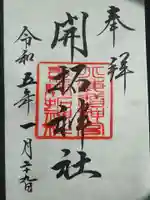 奉拝
開拓神社
令和五年一月六日